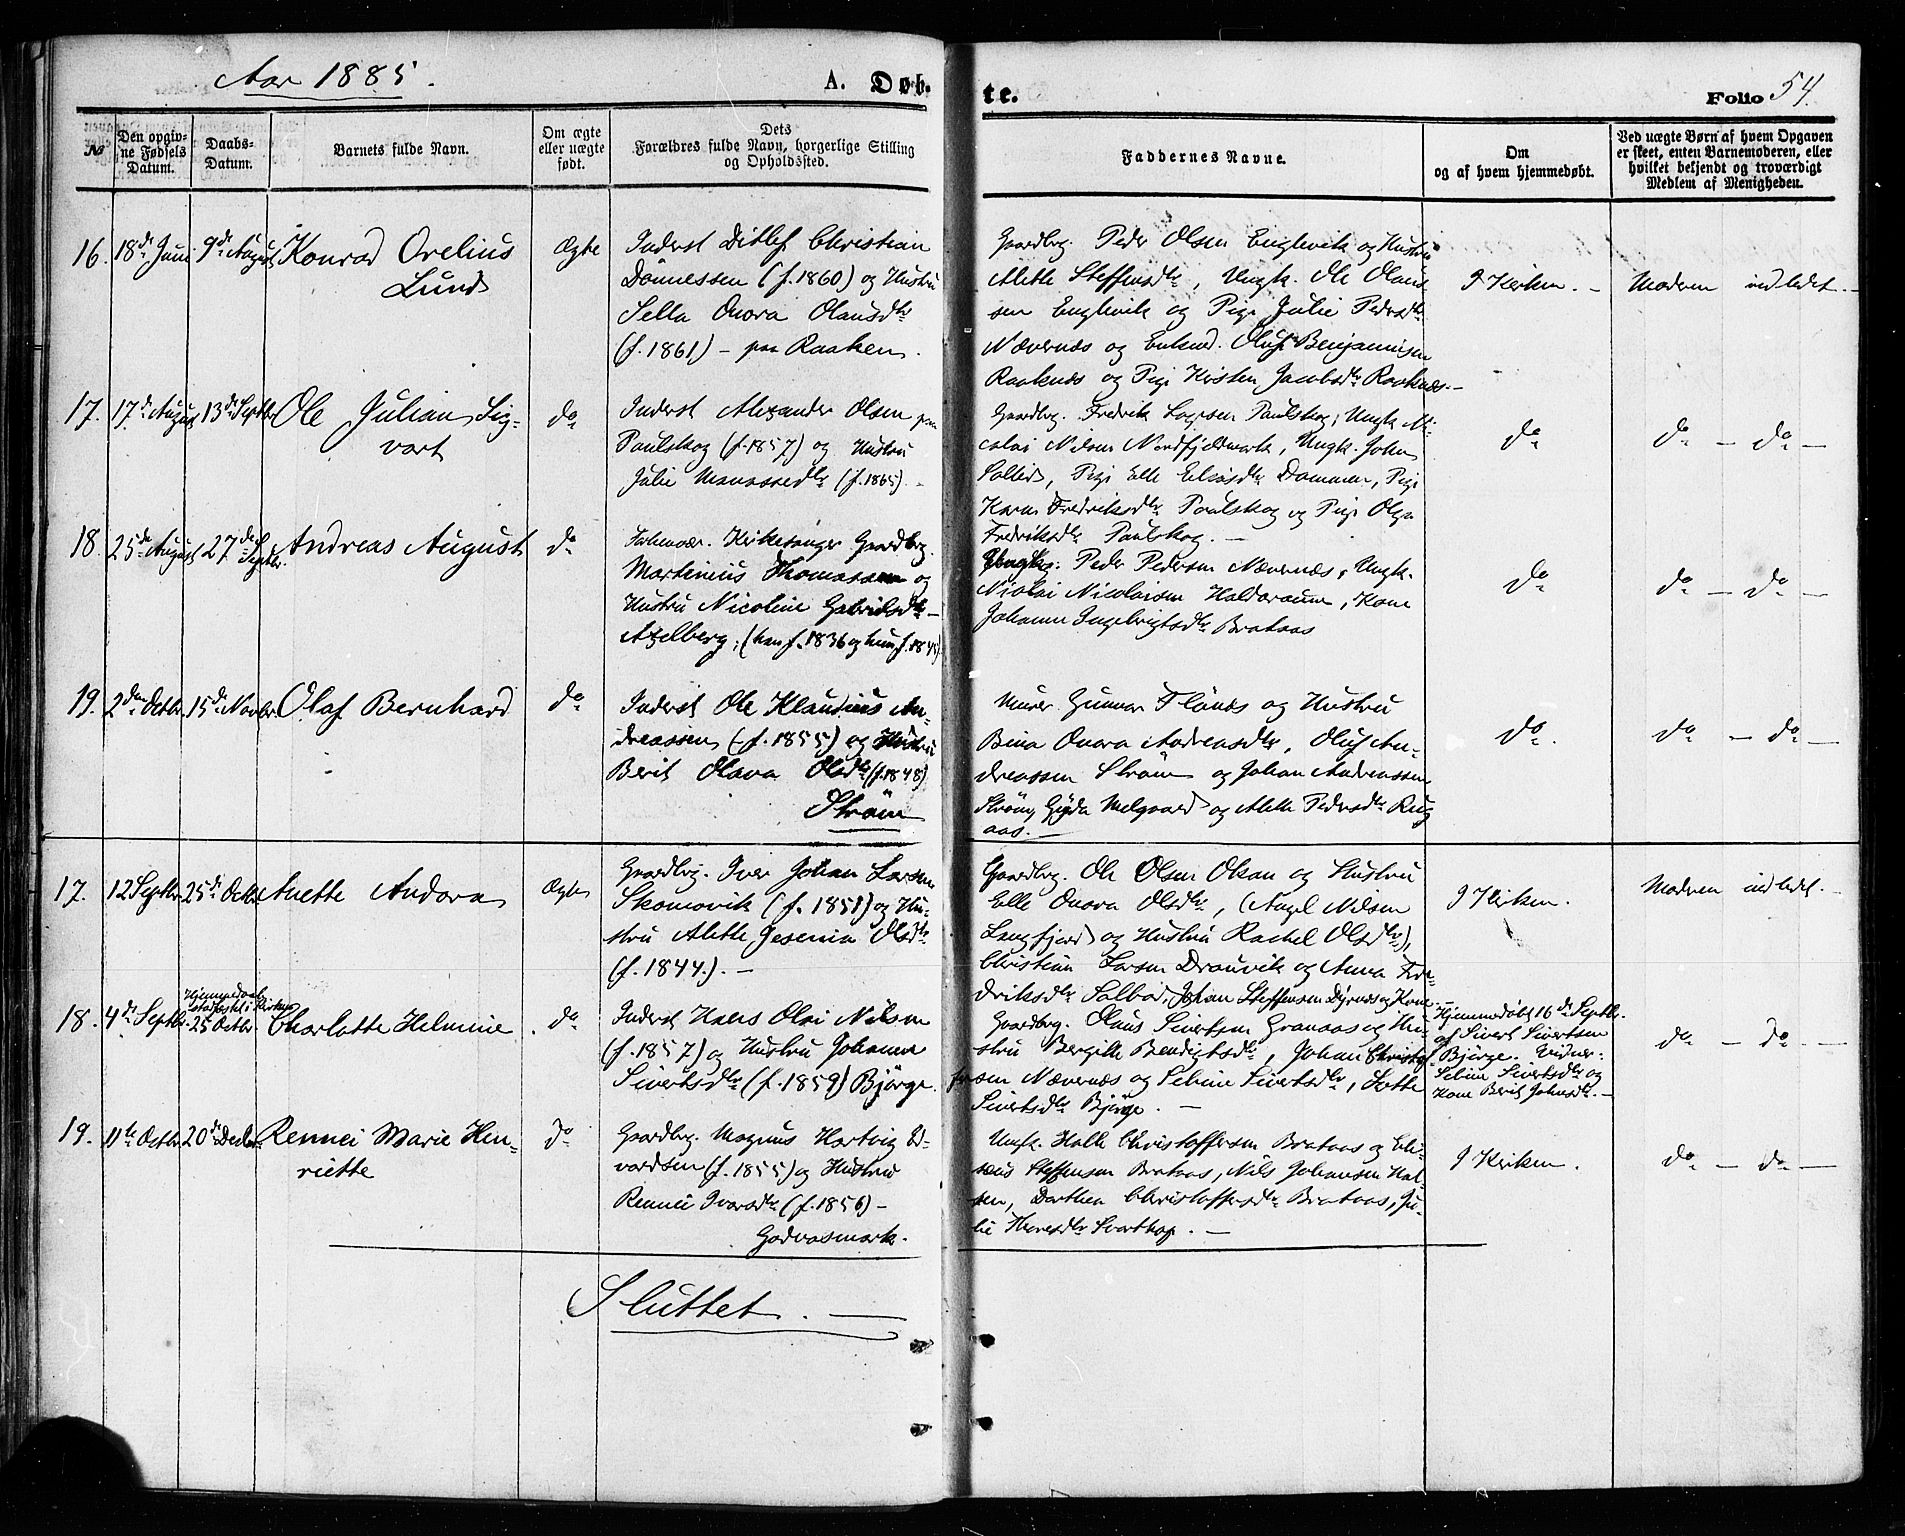 Aar 1885.
A. Døb-
te.
Folio 54.
No
Den opgiv-
ne Fødsels
Datum.
Daabs-
Datum.
Barnets fulde Navn.
Om ægte
eller uægte
født.
Dets
Forældres fulde Navn, borgerlige Stilling
og Opholdssted.
Faddernes Navne.
Om
og af hvem hjemmedøbt.
Ved uægte Børn af hvem Opgaven
er skeet, enten Barnemoderen, eller
hvilket bekjendt og troværdigt
Medlem af Menigheden.
16. 18de Juni 9de August Konrad Orelius
Lund
Ægte
Inderst Ditlef Christian
Dönnessen (f. 1860) og Hustru
Sella Onora Olausdtr
(f. 1861) – paa Raaken.
Gaardbrg. Peder Olsen Englevik og Hustru
Alethe Steffensdtr, Ungk. Ole Olaus-
sen Englevik og Pige Julie Pedersdtr
Nævernæs og Enkemd. Oluf Benjaminsen
Raaknæs og Pige Kirsten Jacobsdtr Raaknæs.–
I Kirken. –
Moderen indledet. –
17. 17de August 13de Septbr Ole Julian Sig-
vart
do
Inderst Alexander Olsen paa
Paulskog (f. 1857) og Hustru
Julie Manassedtr (f. 1865). –
Gaardbrg. Fredrik Paulskog, Ungk. Ni-
colai Nilsen Nordfjeldmark, Ungk. John
Solli, Pige Elle Dommen, Pige
Karen Fredriksdtr Paulskog og Pige Olga
Fredriksdtr Paulskog. –
do
do – do –
18. 25de August 27de Septbr. Andreas August
do
Kirkesanger Gaardbrg.
Martinius Thomassen og
Hustru Nicoline Gabrielsdtr –
Axelberg; (han f. 1836 og hun f. 184
Ungk. Peder Pedersen Nævernæs, Ungk.
Nicolai Nicolaisen Haldoraune, Kone
Johanna Ingebrigtsdtr Brataas
do
do – do –
19. 2den Octbr. 15de Novbr. Olaf Bernhard
do
Inderst Ole Klaudius An-
dreassen (f. 1855) og Hustru
Berit Olava Olsdtr (f. 1848)
Ström
Murer Gunnar Flönæs og Hustru
Bina Onora Andreasdtr, Oluf An-
dreassen Ström og Johan Andreassen
Ström, Gyda Melgaard og Alette Pedersdtr Rug-
aas. –
do.
do – do –
17. 12 Septbr. 25de Octbr Anette Andora
Ægte
Gaardbrg. Iver Johan Larsen
Skomovik (f. 1851) og Hu-
stru Alette Jesenia Olsdtr
(f. 1844). –
Gaardbrg. Ole Olsen Okan og Hustru
Elle Onora Olsdtr, (Angel Nilsen
Langfjord og Hustru Rachel Olsdtr),
Christian Larsen Drauvik og Anna Fre-
driksdtr Solbad, Johan Steffensen Dyrnæs og Kone. –
I Kirken.
Moderen indledet. –
18. 4de Septbr.
Hjemmedaab
stadfæstet i Kirken
25 Octbr. Charlotte Helmine.
do
Inderst Hans Olai Nilsen
(f. 1857) og Hustru Johanna
Sivertsdtr (f. 1859) Björge.
Gaardbrg. Olaus Sivertsen Granaas og Hu-
stru Bergitte Bendigtsdtr, Johan Christof-
fersen Nævernæs og Seline Sivertsdtr, Lotte
Sivertsdtr Björge. –
Hjemmedöbt 16de Septbr.
af Sivert Sivertsen
Björge. Vidner:
Seline Sivertsdtr og
Kone Berit Johnsdtr. –
do – do –
19. 11te Octbr. 20de Decbr. Rennei Marie Hen-
riette
do
Gaardbrg. Magnus Hartvig Ed-
vardsen (f. 1855) og Hustru
Rennei Ivarsdtr (f. 1856) –
Godvasmark.
Ungk. Halle Christoffersen Brataas og Eli-
sæus Steffensen Brataas, Nils Johansen Hal-
sen, Dorthea Christoffersdtr Brataas, Ju-
lie Svarthop. –
I Kirken.
do – do –
Sluttet. –